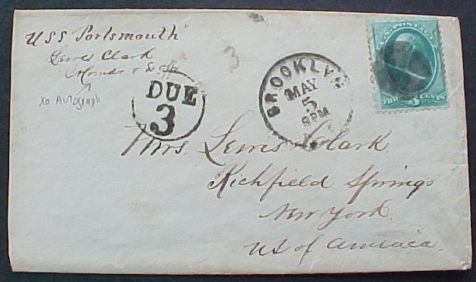 USS Portsmouth
Lewis Clark
no Autograph
3
DUE
3
BROOKLYN
MAY
5
8PM
U.S. POSTAGE
3
CENTS
Mrs Lewis Clark
Richfield Springs
New York
US of America.